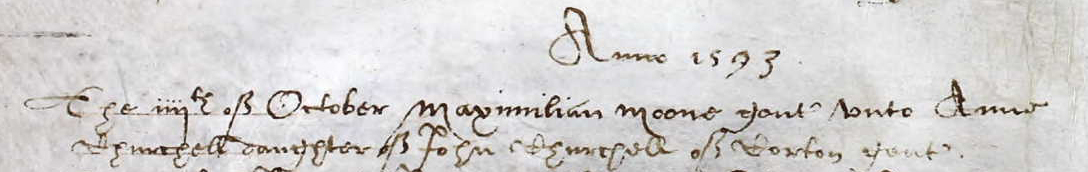 Anno 1593
The iiijth of October Maximilian Moone gent' vnto Anne
Churchell daughter of John Churchell of Corton gent'.